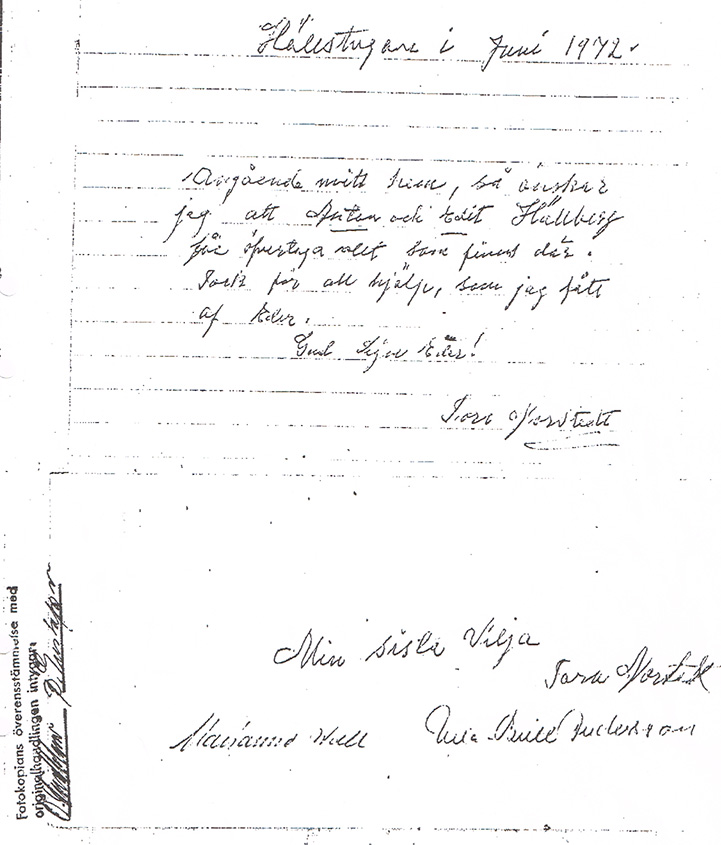 Hällestugan i Juni 1972.
Angående mitt hem, så önskar
jag att Anton och Edit Hällberg
får övertaga allt som finns där.
Tack för all hjälp, som jag fått
af Eder.
Gud Signe Eder!
Tora Norstedt
Min sista Vilja
Tora Norstedt
Marianne Wall
Britt Andersson
Fotokopians överensstämmelse med
originalhandlingen intygar: